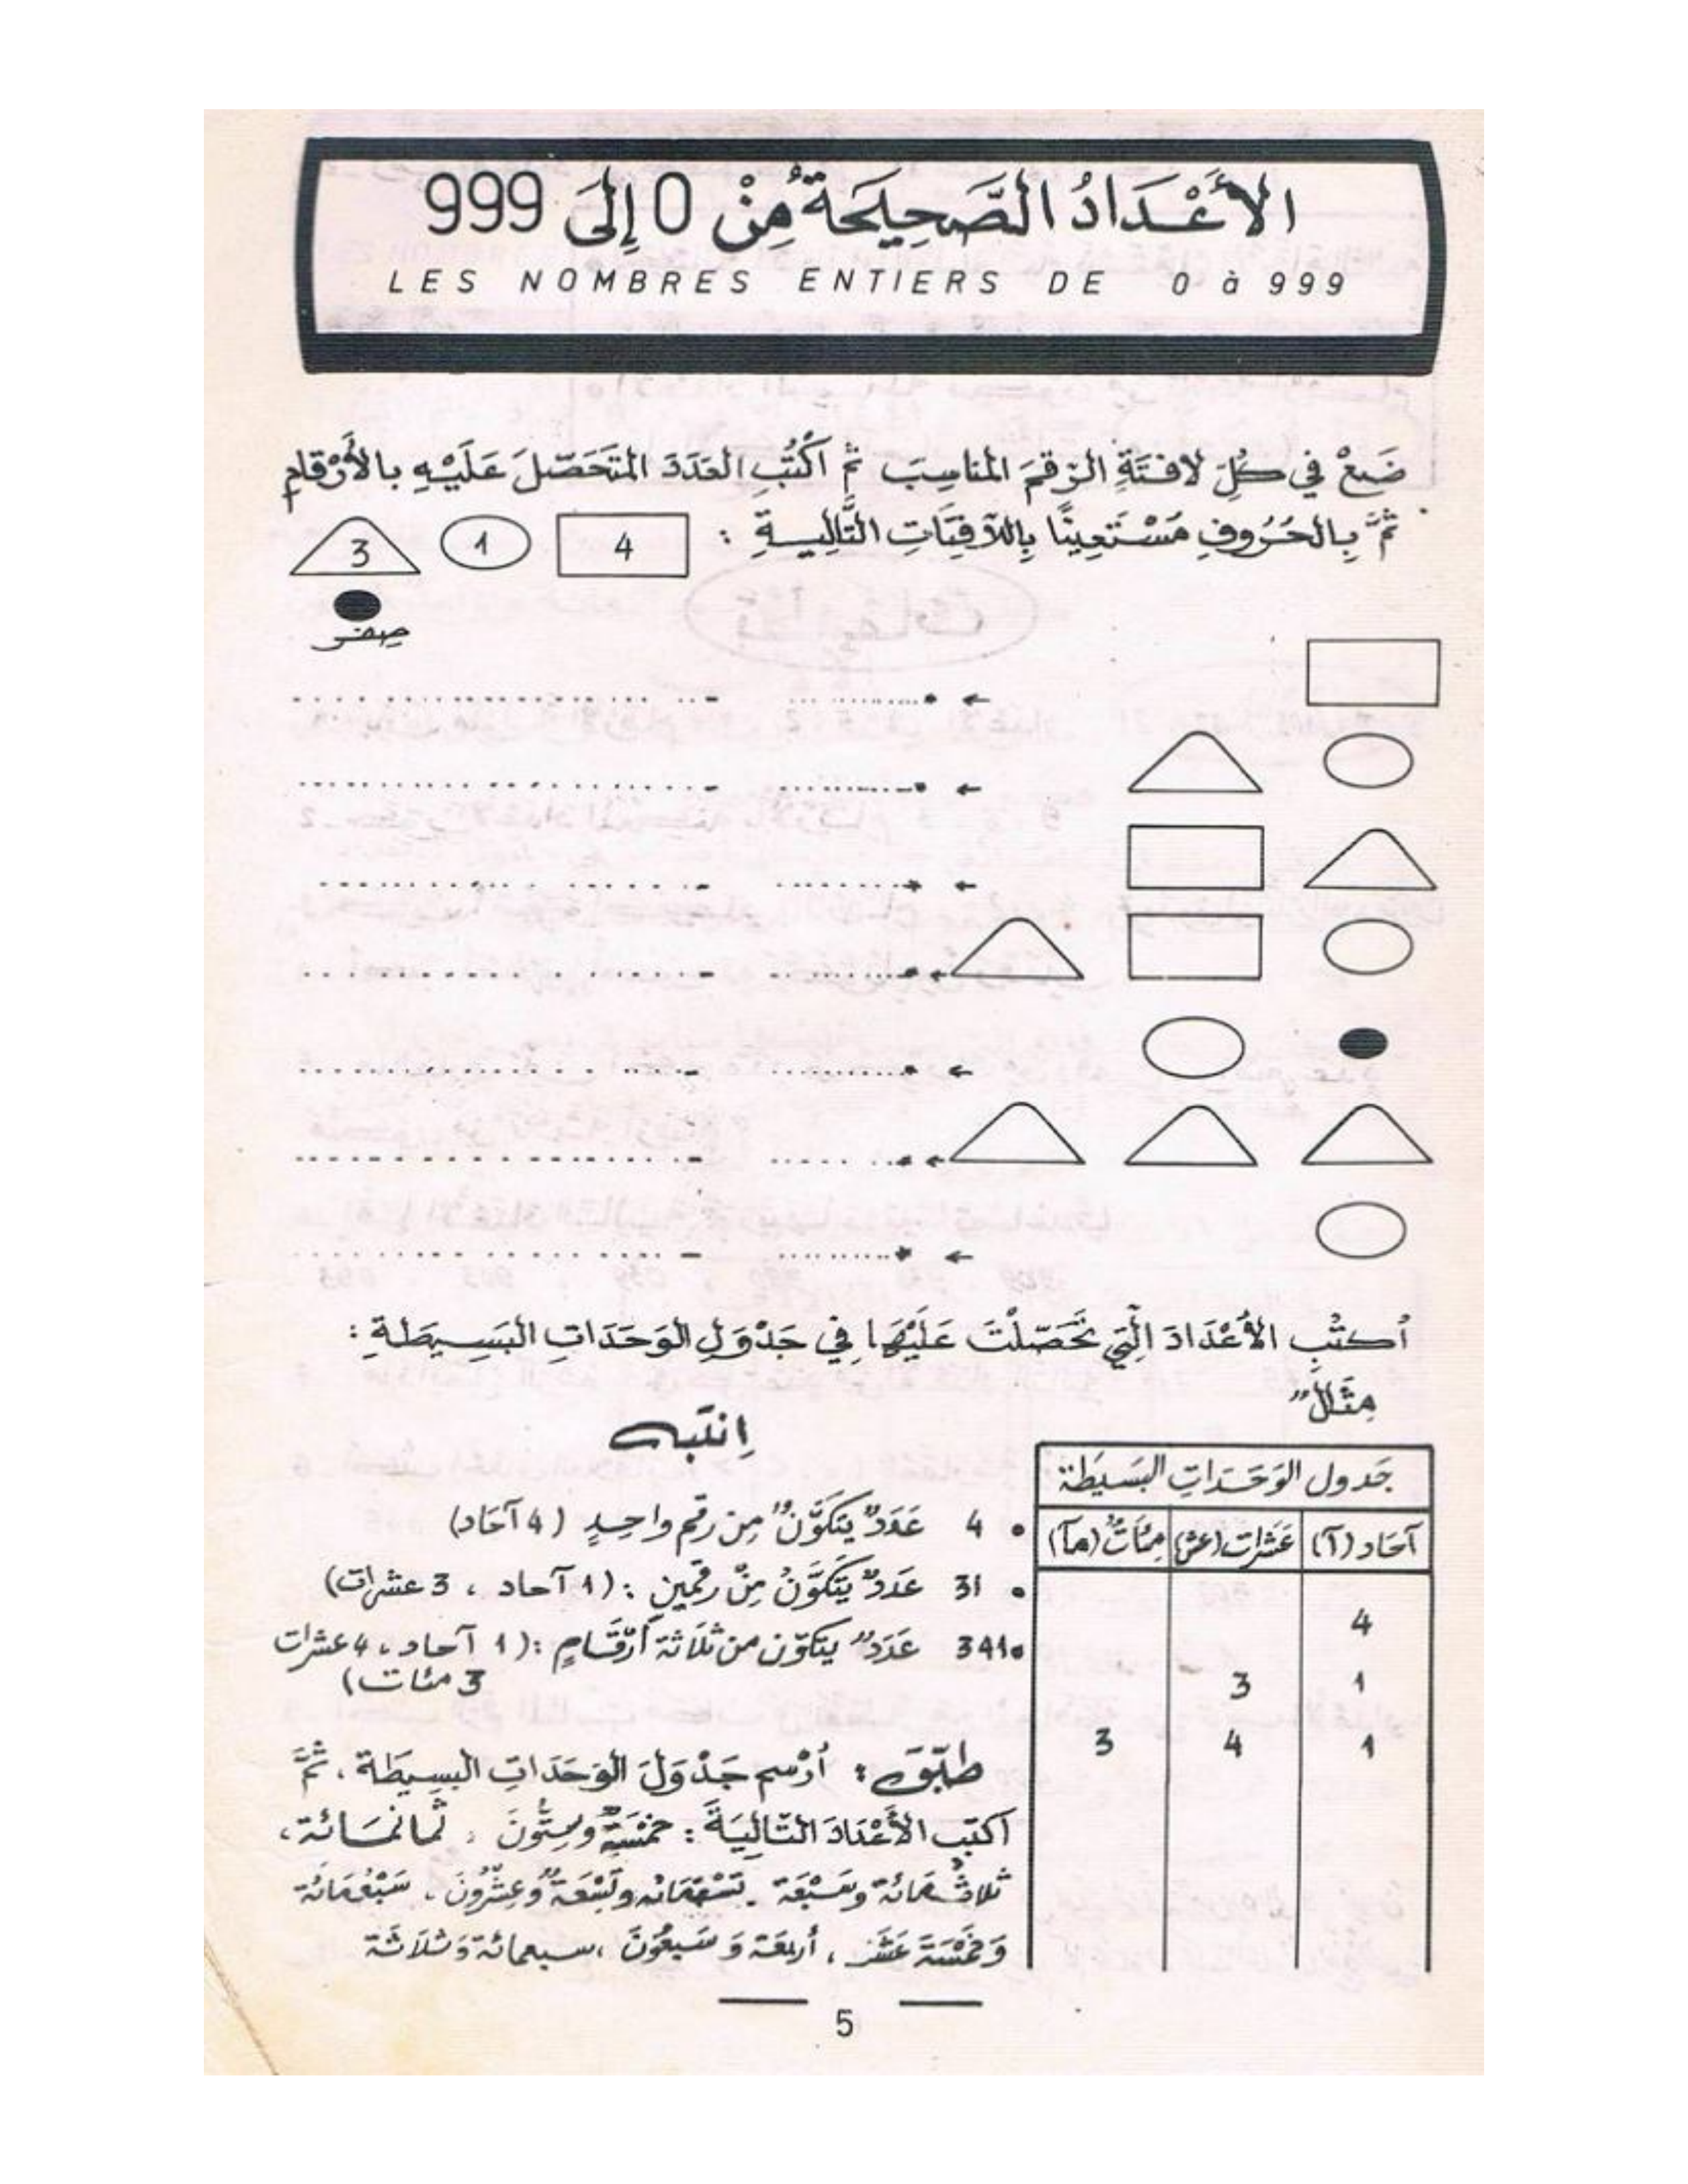 الأَعْدَادُ الصَّحِيحَةُ مِنْ 0 إِلَى 999
LES NOMBRES ENTIERS DE 0 à 999
ضَعْ في كُلِّ لافتَةٍ الرّقمَ المناسِبَ ثمّ اُكْتُبِ العَدَدَ المتَحَصّلَ عَلَيْهِ بالأَرْقامِ
ثمَّ بِالحُرُوفِ مُسْتَعِينًا بِاللاَّفِتَاتِ التَّالِيةِ :
4 1 3
صِفر
اُكتُبِ الأَعْدَادَ الّتِي تَحَصّلْتَ عَلَيْهَا فِي جَدْوَلِ الوَحَدَاتِ البَسِيطَةِ :
مِثَالٌ
جَدول الوَحَدَاتِ البَسيطَة
آحَاد (آ) عَشَرات (عش) مِئَاتٌ (مآ)
4
1 3
1 4 3
اِنتَبِه
• 4 عَدَدٌ يَتكَوَّنُ مِن رقمٍ واحِدٍ (4 آحَاد)
• 31 عَدَدٌ يَتَكَوَّنُ مِنْ رقمين : (1 آحاد ، 3 عشرات)
• 341 عَدَدٌ يتكوّن من ثَلاَثة أَرْقَامٍ : (1 آحاد ، 4 عشرات
3 مئات)
طبّق : اُرْسم جَدْوَلَ الوَحَدَاتِ البسِيطَة ، ثمَّ
اُكتب الأَعْدَادَ التّالِيَةَ : خَمْسَةٌ وسِتُّونَ ، ثمانمَائة ،
ثلاثُمَائة وسَبْعَة . تسْعُمَائة وتِسْعَةٌ وعِشْرُونَ ، سَبْعُمَائة
وَخَمْسَةَ عَشَر ، أربعَة وَ سَبعُونَ ، سبعمائة وَثَلاَثة
5